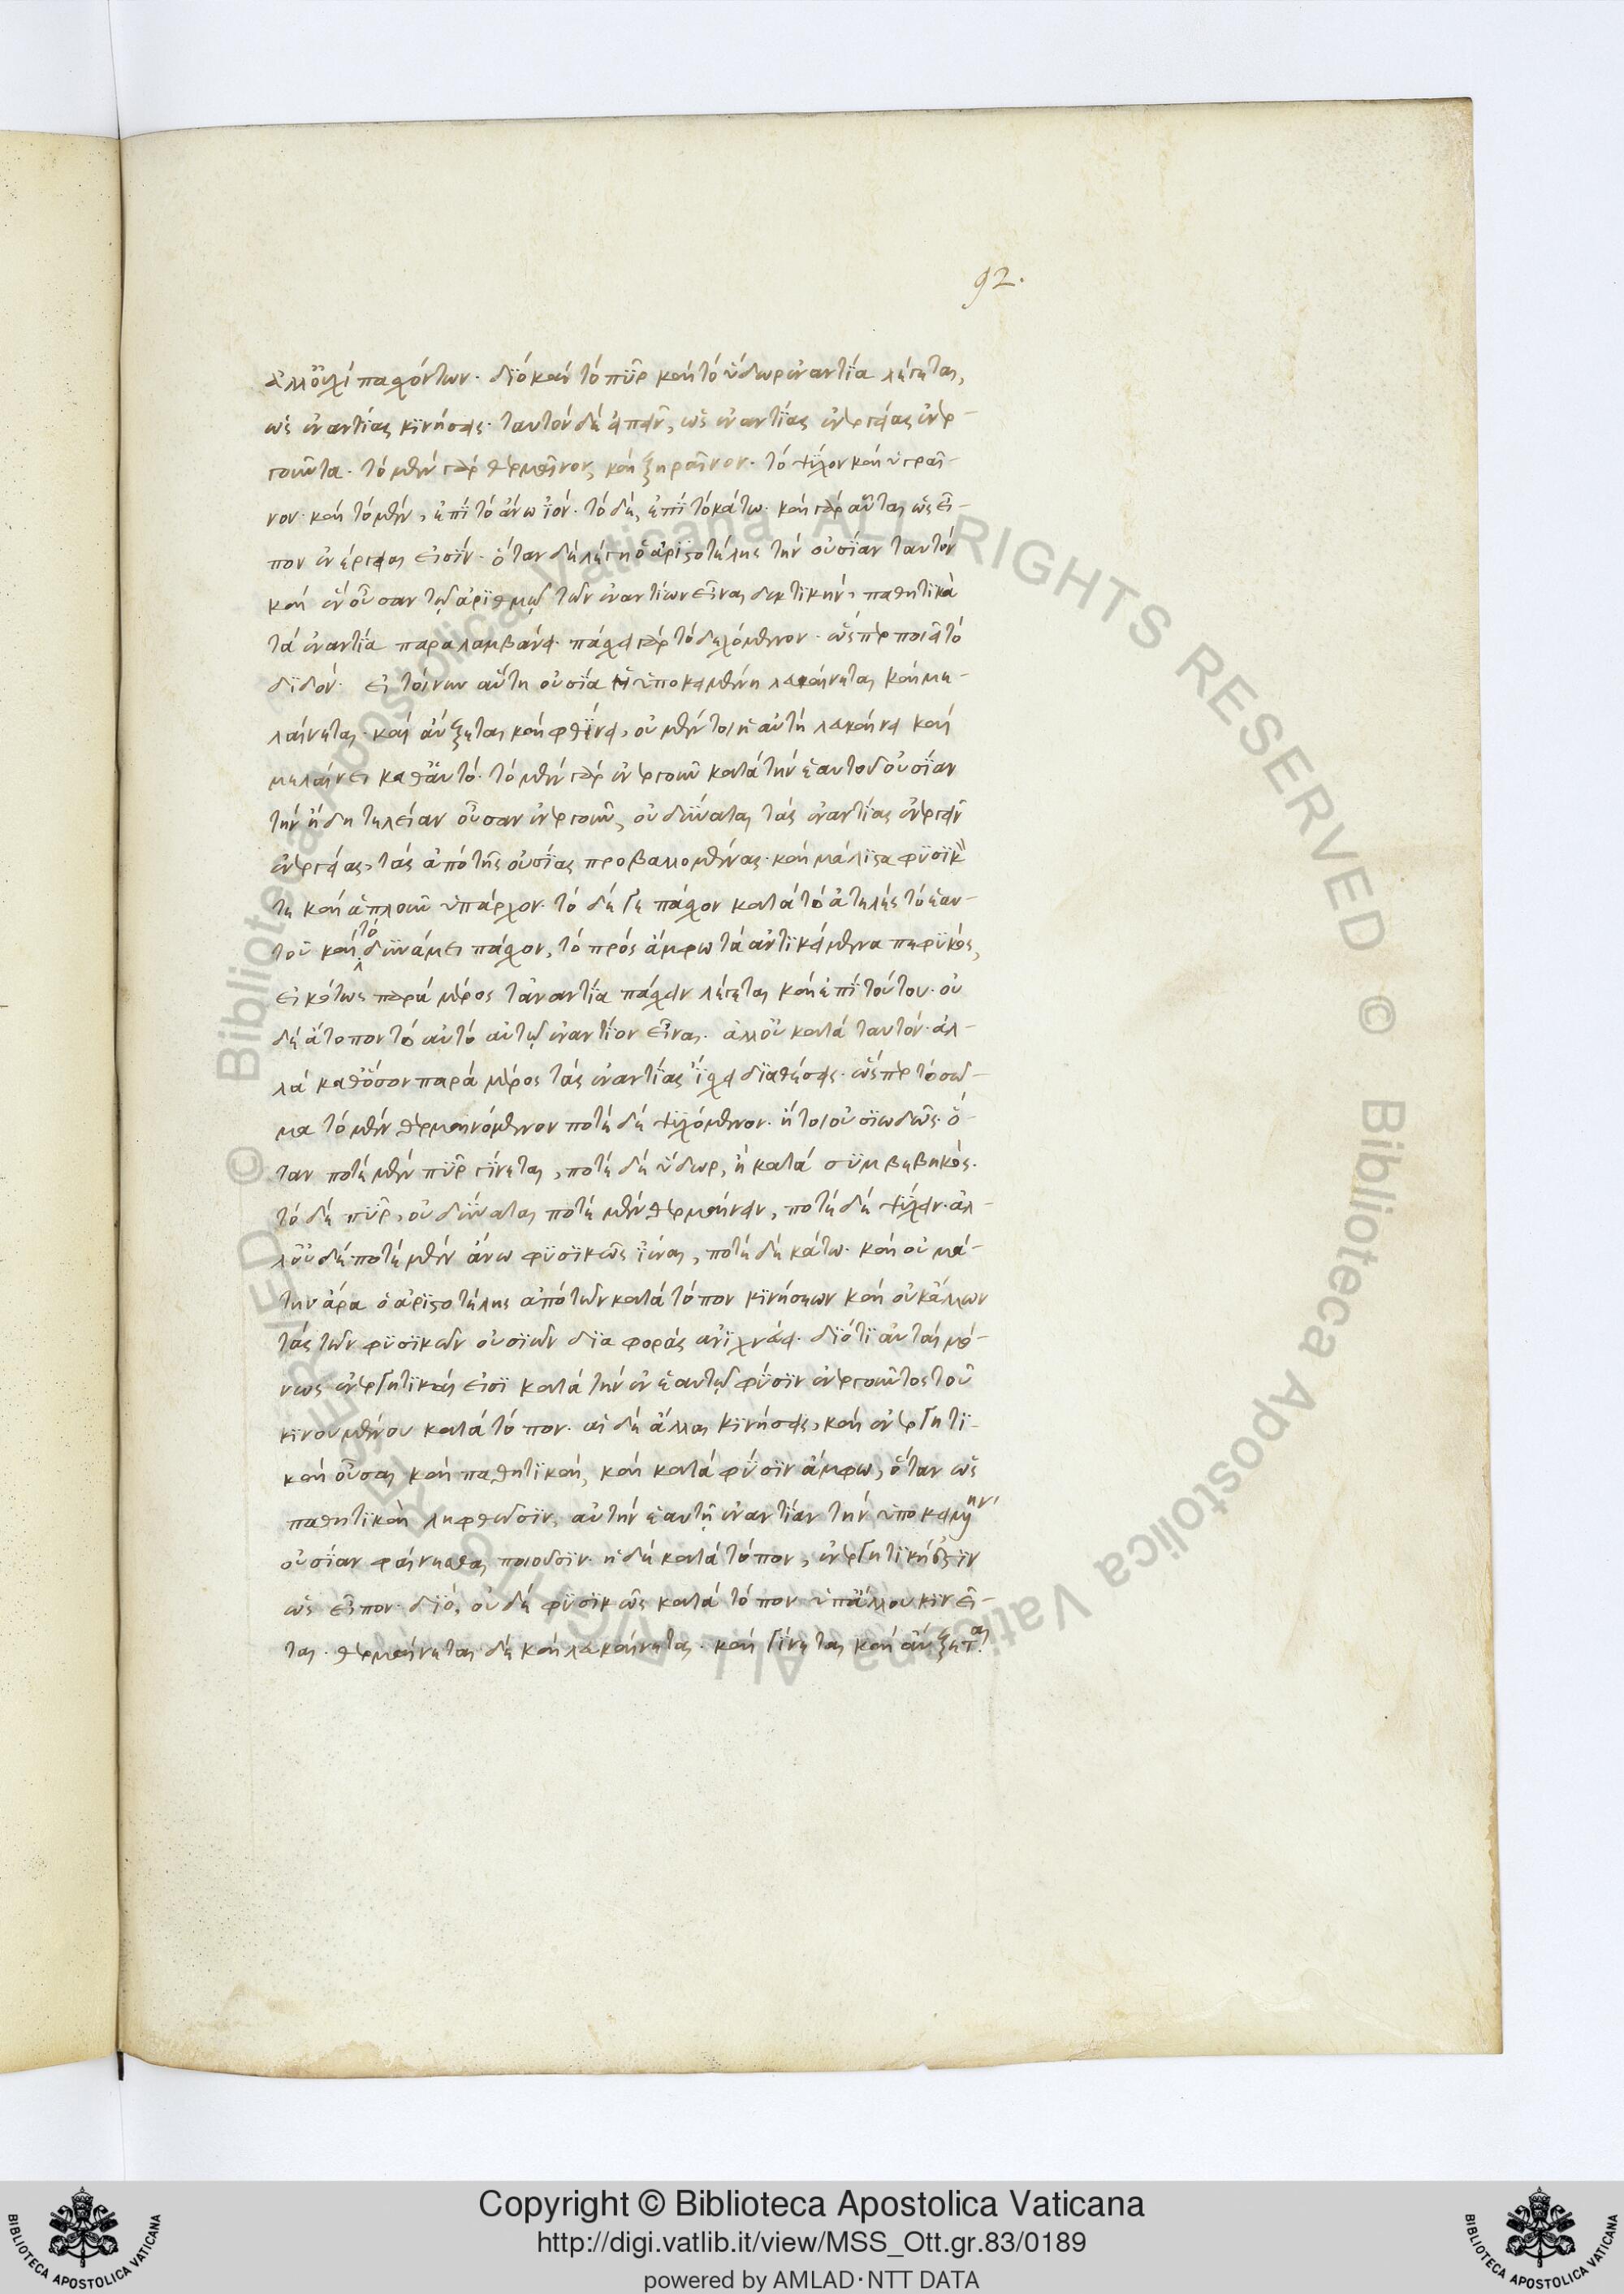 92.
ἀλλ' οὐχὶ πασχόντων. διὸ καὶ τὸ πῦρ καὶ τὸ ὕδωρ ἐναντία λέγεται,
ὡς ἐναντίας κινήσεις. ταυτὸν δὲ εἰπεῖν, ὡς ἐναντίας ἐνεργείας ἐνερ-
γοῦντα. τὸ μὲν γὰρ θερμαῖνον, καὶ ξηραῖνον. τὸ ψῦχον καὶ ὑγραῖ-
νον. καὶ τὸ μὲν, ἐπὶ τὸ ἄνω ἰόν. τὸ δὲ, ἐπὶ τὸ κάτω. καὶ γὰρ αὗται ὡς εἶ-
πον ἐνέργειαι εἰσίν. ὅταν δὲ λέγη ὁ ἀριστοτέλης τὴν οὐσίαν ταυτὸν
καὶ ἓν οὖσαν τῷ ἀριθμῷ τῶν ἐναντίων εἶναι δεκτικὴν, παθητικὰ
τὰ ἐναντία παραλαμβάνει. πάσχει γὰρ τὸ δεχόμενον. ὥσπερ ποιεῖ τὸ
διδόν. εἰ τοίνυν αὕτη οὐσία ἡ ὑποκειμένη λευκαίνεται καὶ με-
λαίνεται. καὶ αὔξεται καὶ φθίνει, οὐ μέντοι ἡ αὐτὴ λευκαίνει καὶ
μελαίνει καθ' αὑτό. τὸ μὲν γὰρ ἐνεργοῦν κατὰ τὴν ἑαυτοῦ οὐσίαν
τὴν ἤδη τελείαν οὖσαν ἐνεργοῦν, οὐ δύναται τὰς ἐναντίας ἐνεργεῖν
ἐνεργείας, τὰς ἀπὸ τῆς οὐσίας προβαλλομένας. καὶ μάλιστα φυσικόν
τε καὶ ἁπλοῦν ὑπάρχον. τὸ δέ γε πάσχον κατὰ τὸ ἀτελὲς τὸ ἑαυ-
τοῦ καὶ τὸ δυνάμει πάσχον, τὸ πρὸς ἄμφω τὰ ἀντικείμενα πεφυκὸς,
εἰκότως παρὰ μέρος τἀναντία πάσχειν λέγεται καὶ ἐπὶ τούτου. οὐ
δὲ ἄτοπον τὸ αὐτὸ αὑτῷ ἐναντίον εἶναι. ἀλλ' οὐ κατὰ ταυτόν. ἀλ-
λὰ καθ' ὅσον παρὰ μέρος τὰς ἐναντίας ἴσχει διαθέσεις. ὥσπερ τὸ σῶ-
μα τὸ μὲν θερμαινόμενον ποτὲ δὲ ψυχόμενον. ἤτοι οὐσιωδῶς. ὅ-
ταν ποτὲ μὲν πῦρ γίνεται, ποτὲ δὲ ὕδωρ, ἢ κατὰ συμβεβηκός.
τὸ δὲ πῦρ, οὐ δύναται ποτὲ μὲν θερμαίνειν, ποτὲ δὲ ψύχειν. ἀλ-
λ' οὐδὲ ποτὲ μὲν ἄνω φυσικῶς ἰέναι, ποτὲ δὲ κάτω. καὶ οὐ μά-
την ἄρα ὁ ἀριστοτέλης ἀπὸ τῶν κατὰ τόπον κινήσεων καὶ οὐκ ἄλλων
τὰς τῶν φυσικῶν οὐσιῶν διαφορὰς ἀνιχνεύει. διότι αὗται μό-
νως ἐνεργητικαί εἰσι κατὰ τὴν ἐν ἑαυτῷ φύσιν ἐνεργοῦντος τοῦ
κινουμένου κατὰ τόπον. αἱ δὲ ἄλλαι κινήσεις, καὶ ἐνεργητι-
καὶ οὖσαι καὶ παθητικαὶ, καὶ κατὰ φύσιν ἄμφω, ὅταν ὡς
παθητικαὶ ληφθῶσιν, αὐτὴν ἑαυτῇ ἐναντίαν τὴν ὑποκειμένην
οὐσίαν φαίνεσθαι ποιοῦσιν. ἡ δὲ κατὰ τόπον, ἐνεργητική ἐστιν
ὡς εἶπον. διὸ, οὐδὲ φυσικῶς κατὰ τόπον ὑπ' ἄλλου κινεῖ-
ται. θερμαίνεται δὲ καὶ λευκαίνεται. καὶ γίνεται καὶ αὔξεται.
Copyright © Biblioteca Apostolica Vaticana
http://digi.vatlib.it/view/MSS_Ott.gr.83/0189
powered by AMLAD·NTT DATA
BIBLIOTECA APOSTOLICA VATICANA
BIBLIOTECA APOSTOLICA VATICANA
© Biblioteca Apostolica Vaticana ALL RIGHTS RESERVED © Biblioteca Apostolica Vaticana ALL RIGHTS RESERVED